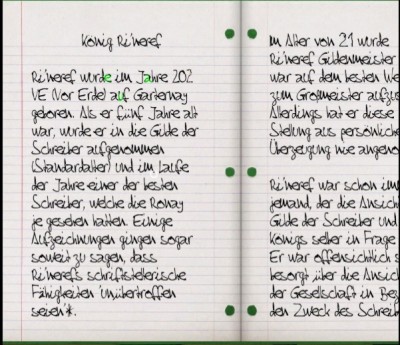 König Ri'neref
Ri'neref wurde im Jahre 202
VE (Vor Erde) auf Garternay
geboren. Als er fünf Jahre alt
war, wurde er in die Gilde der
Schreiber aufgenommen
(Standardalter) und im Laufe
der Jahre einer der besten
Schreiber, welche die Ronay
je gesehen hatten. Einige
Aufzeichnungen gingen sogar
soweit zu sagen, dass
Ri'nerefs schriftstellerische
Fähigkeiten 'unübertroffen
seien*.
Im Alter von 21 wurde
Ri'neref Gildenmeister
war auf dem besten We
zum Großmeister aufzus
Allerdings hat er diese
Stellung aus persönliche
Überzeugung nie angeno
Ri'neref war schon imm
jemand, der die Ansich
Gilde der Schreiber und
Königs selber in Frage
Er war offensichtlich s
besorgt über die Ansich
der Gesellschaft in Bez
den Zweck des Schreib